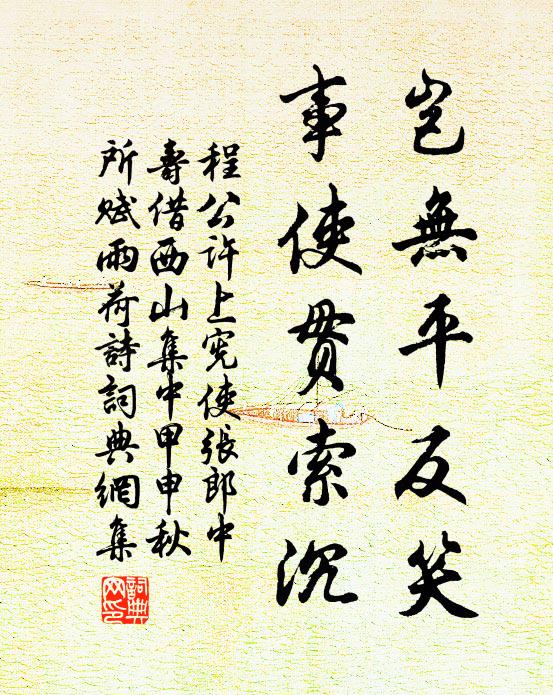 岂無平反笑
事使贯索沉
程公许上宪使張郎中
壽借西山集中甲申秋
所赋雨荷詩詞典網集
詞典網印